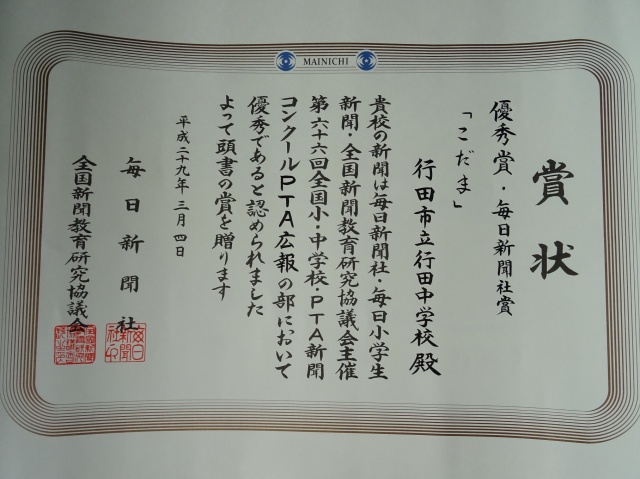 MAINICHI
賞状
優秀賞・毎日新聞社賞
「こだま」
行田市立行田中学校殿
貴校の新聞は毎日新聞社・毎日小学生
新聞・全国新聞教育研究協議会主催
第六十六回全国小・中学校・PTA新聞
コンクールPTA広報の部において
優秀であると認められました
よって頭書の賞を贈ります
平成二十九年三月四日
毎日新聞社
全国新聞教育研究協議会